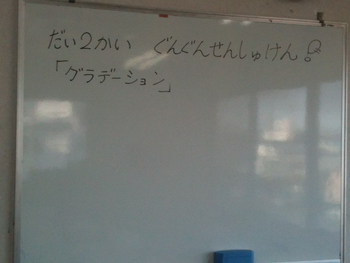 だい2かい ぐんぐんせんしゅけん!
「グラデーション」